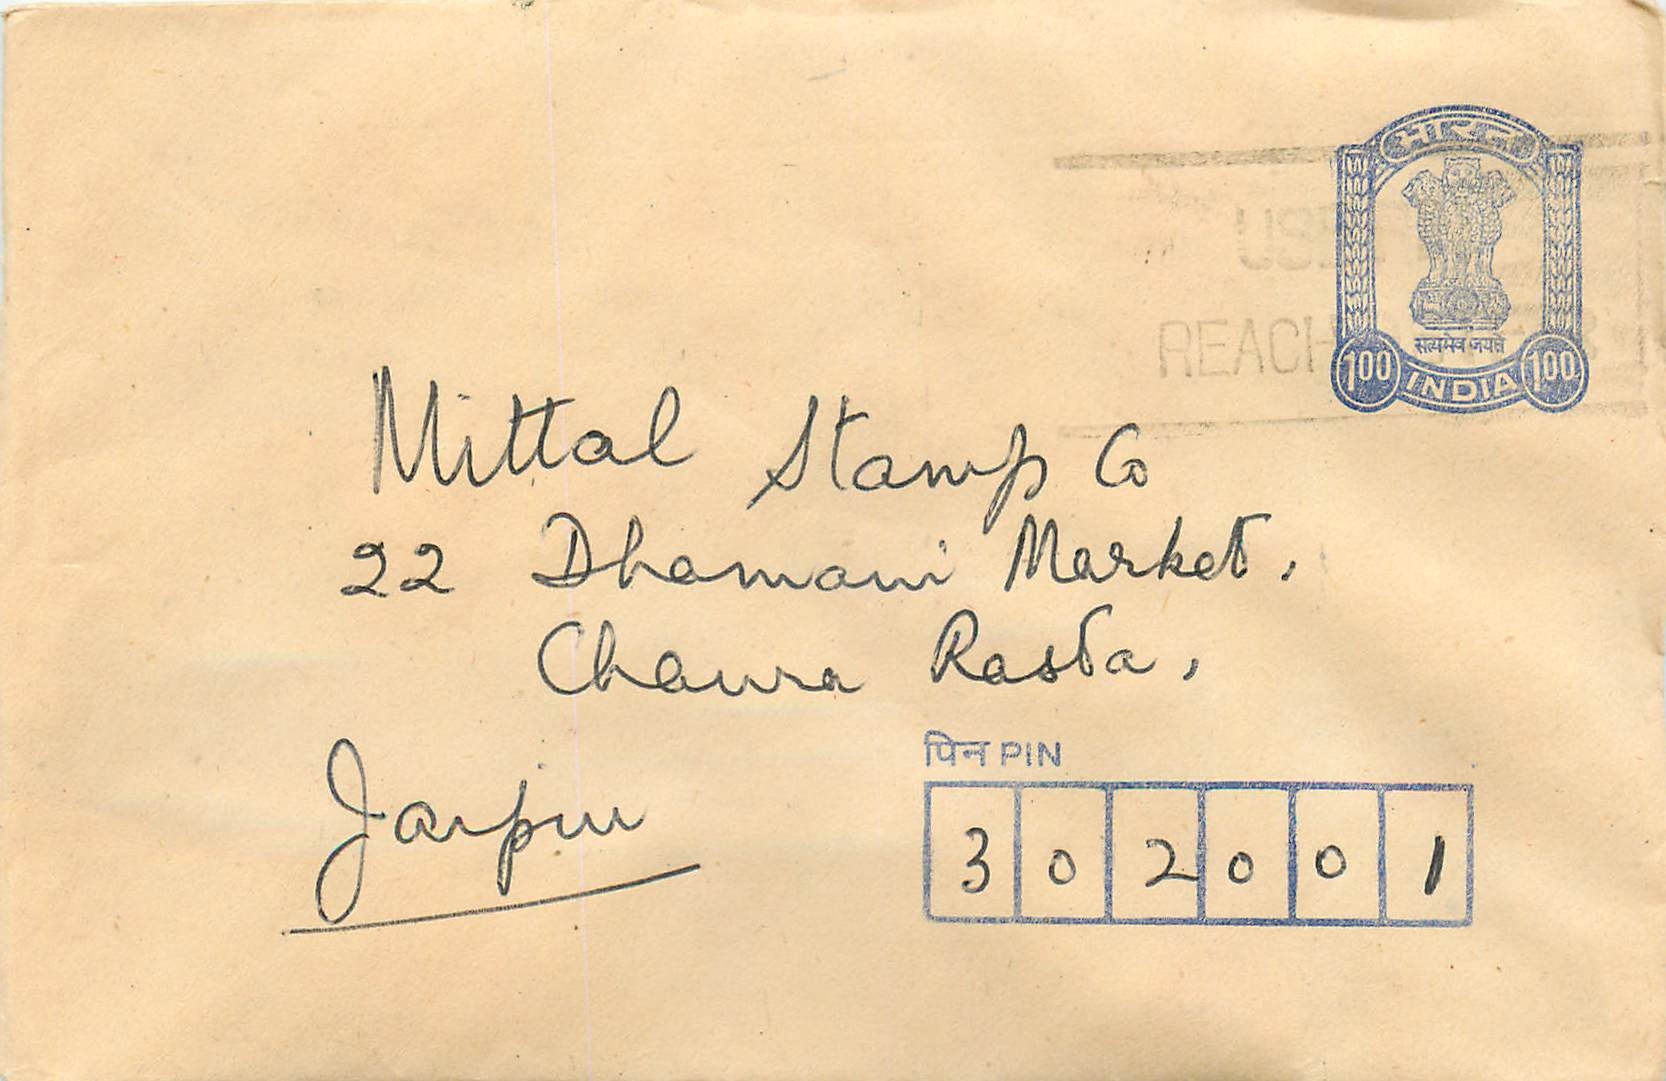 भारत
USE
REACH
सत्यमेव जयते
1.00 INDIA 1.00
Mittal Stamp Co
22 Dhamani Market,
Chaura Rasta,
Jaipur
पिन PIN
302001